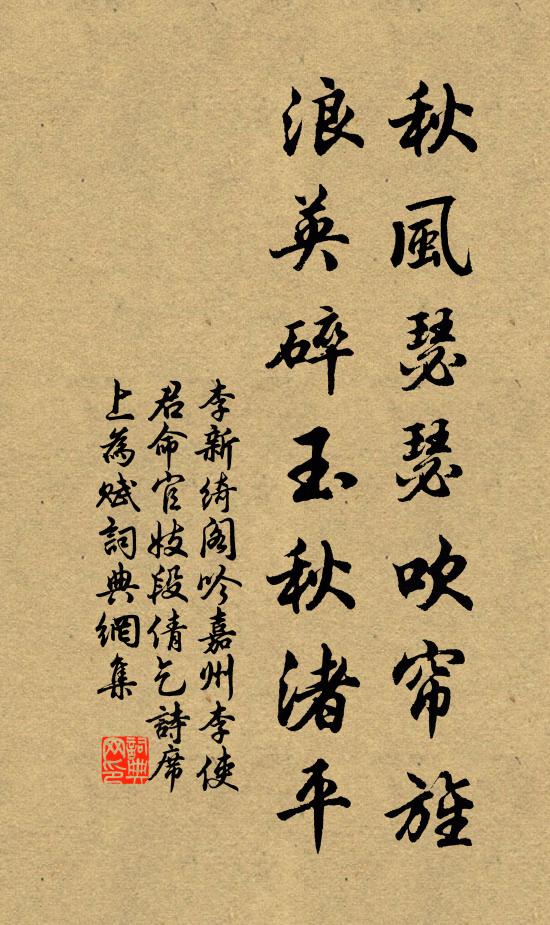 秋風瑟瑟吹帘旌
浪英碎玉秋渚平
李新綺閣吟嘉州李使
君命官妓段倩乞詩席
上為賦詞典網集
詞典网印